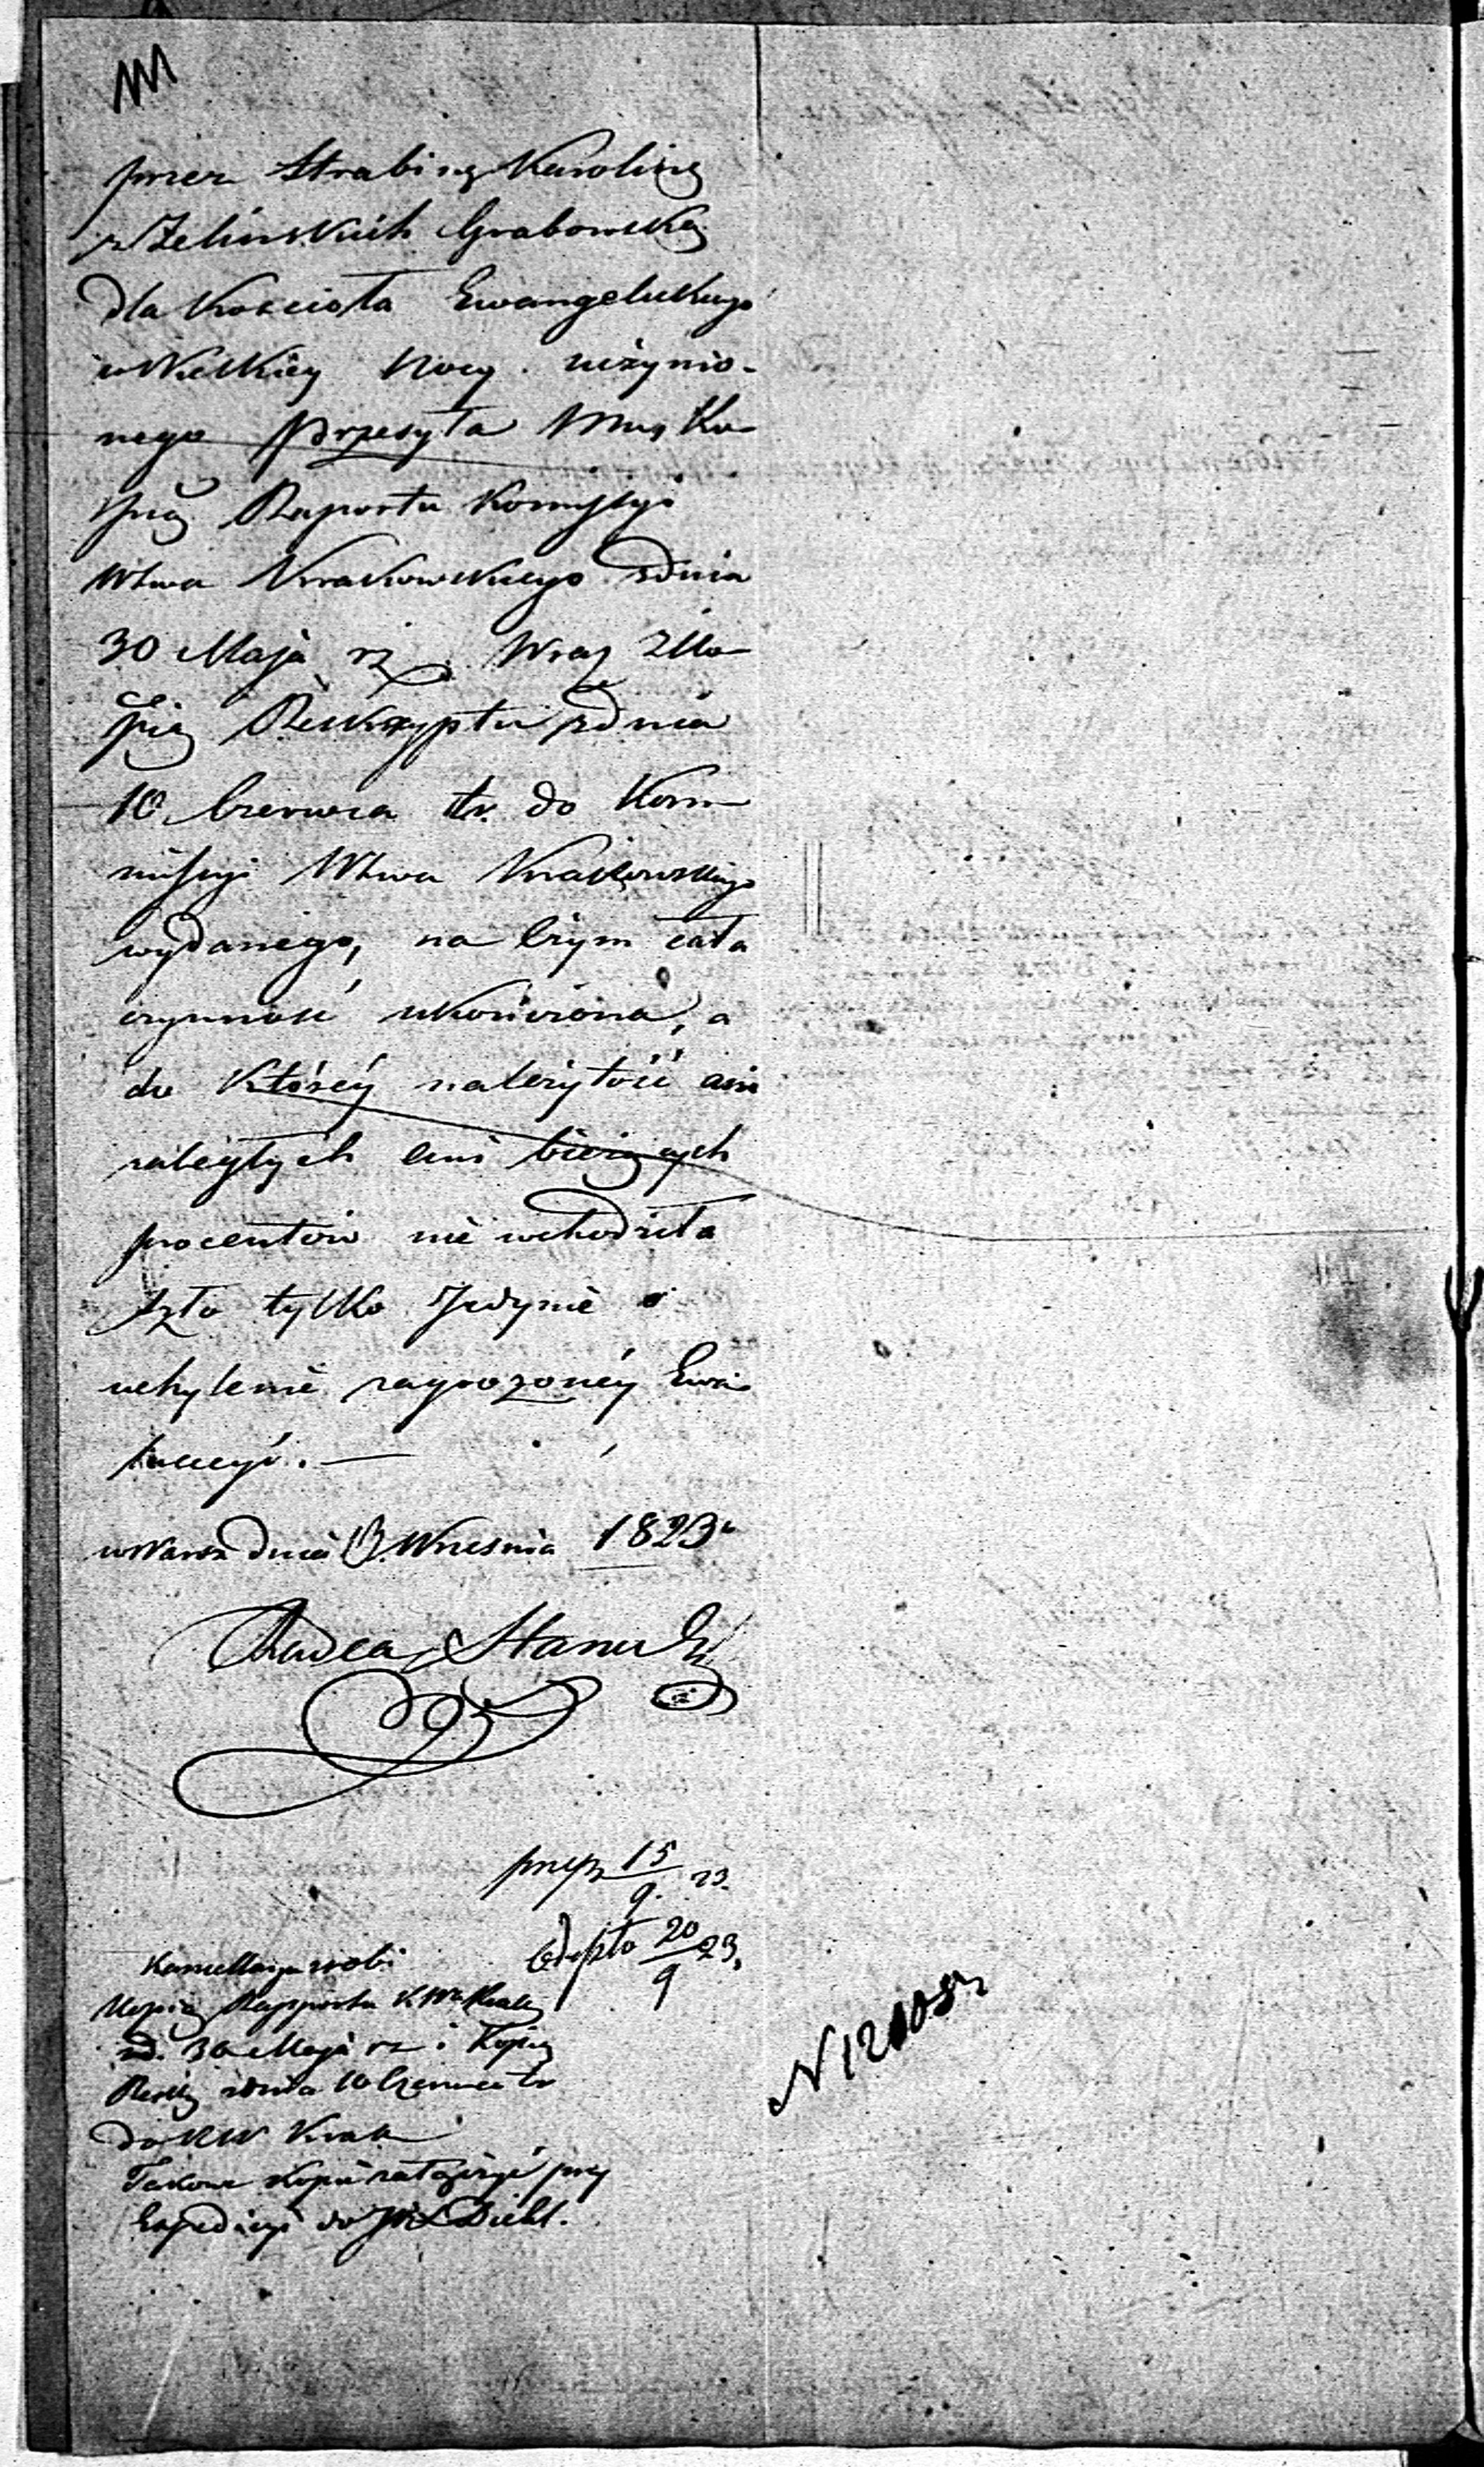 przez Hrabinę Karolinę
z Zelinskich Grabowską
dla Koscioła Ewangelickiego
w Wielkiey Nocy uczynio-
nego przesyła Mu Ko-
piią Raportu Kommissyi
Wtwa Krakowskiego z dnia
30 Maja r z Wraz z Ko-
piią Reskryptu z dnia
10 Czerwca tr. do Kom-
missyi Wtwa Krakowskiego
wydanego, na czym cała
czynność ukończona, a
do któréy należytość ani
zaległych ani bieżących
procentów nie wchodziła
szło tylko Jedynie o
uchylenie zagrożonéy Exe-
kucyi. —
w Warsz dnia 13 Wrzesnia 1823
Radca Stanu
przep 15/9. 23.
Odeszło 20/9 23.
Kancellarya zrobi
Kopią Rapportu KWKrak
zd. 30 Maja rz i Kopią
Reskr z dnia 10 Czerwca tr
do KW Krak
Takowe Kopie załączyć przy
Expedicyi do JW Diehl.